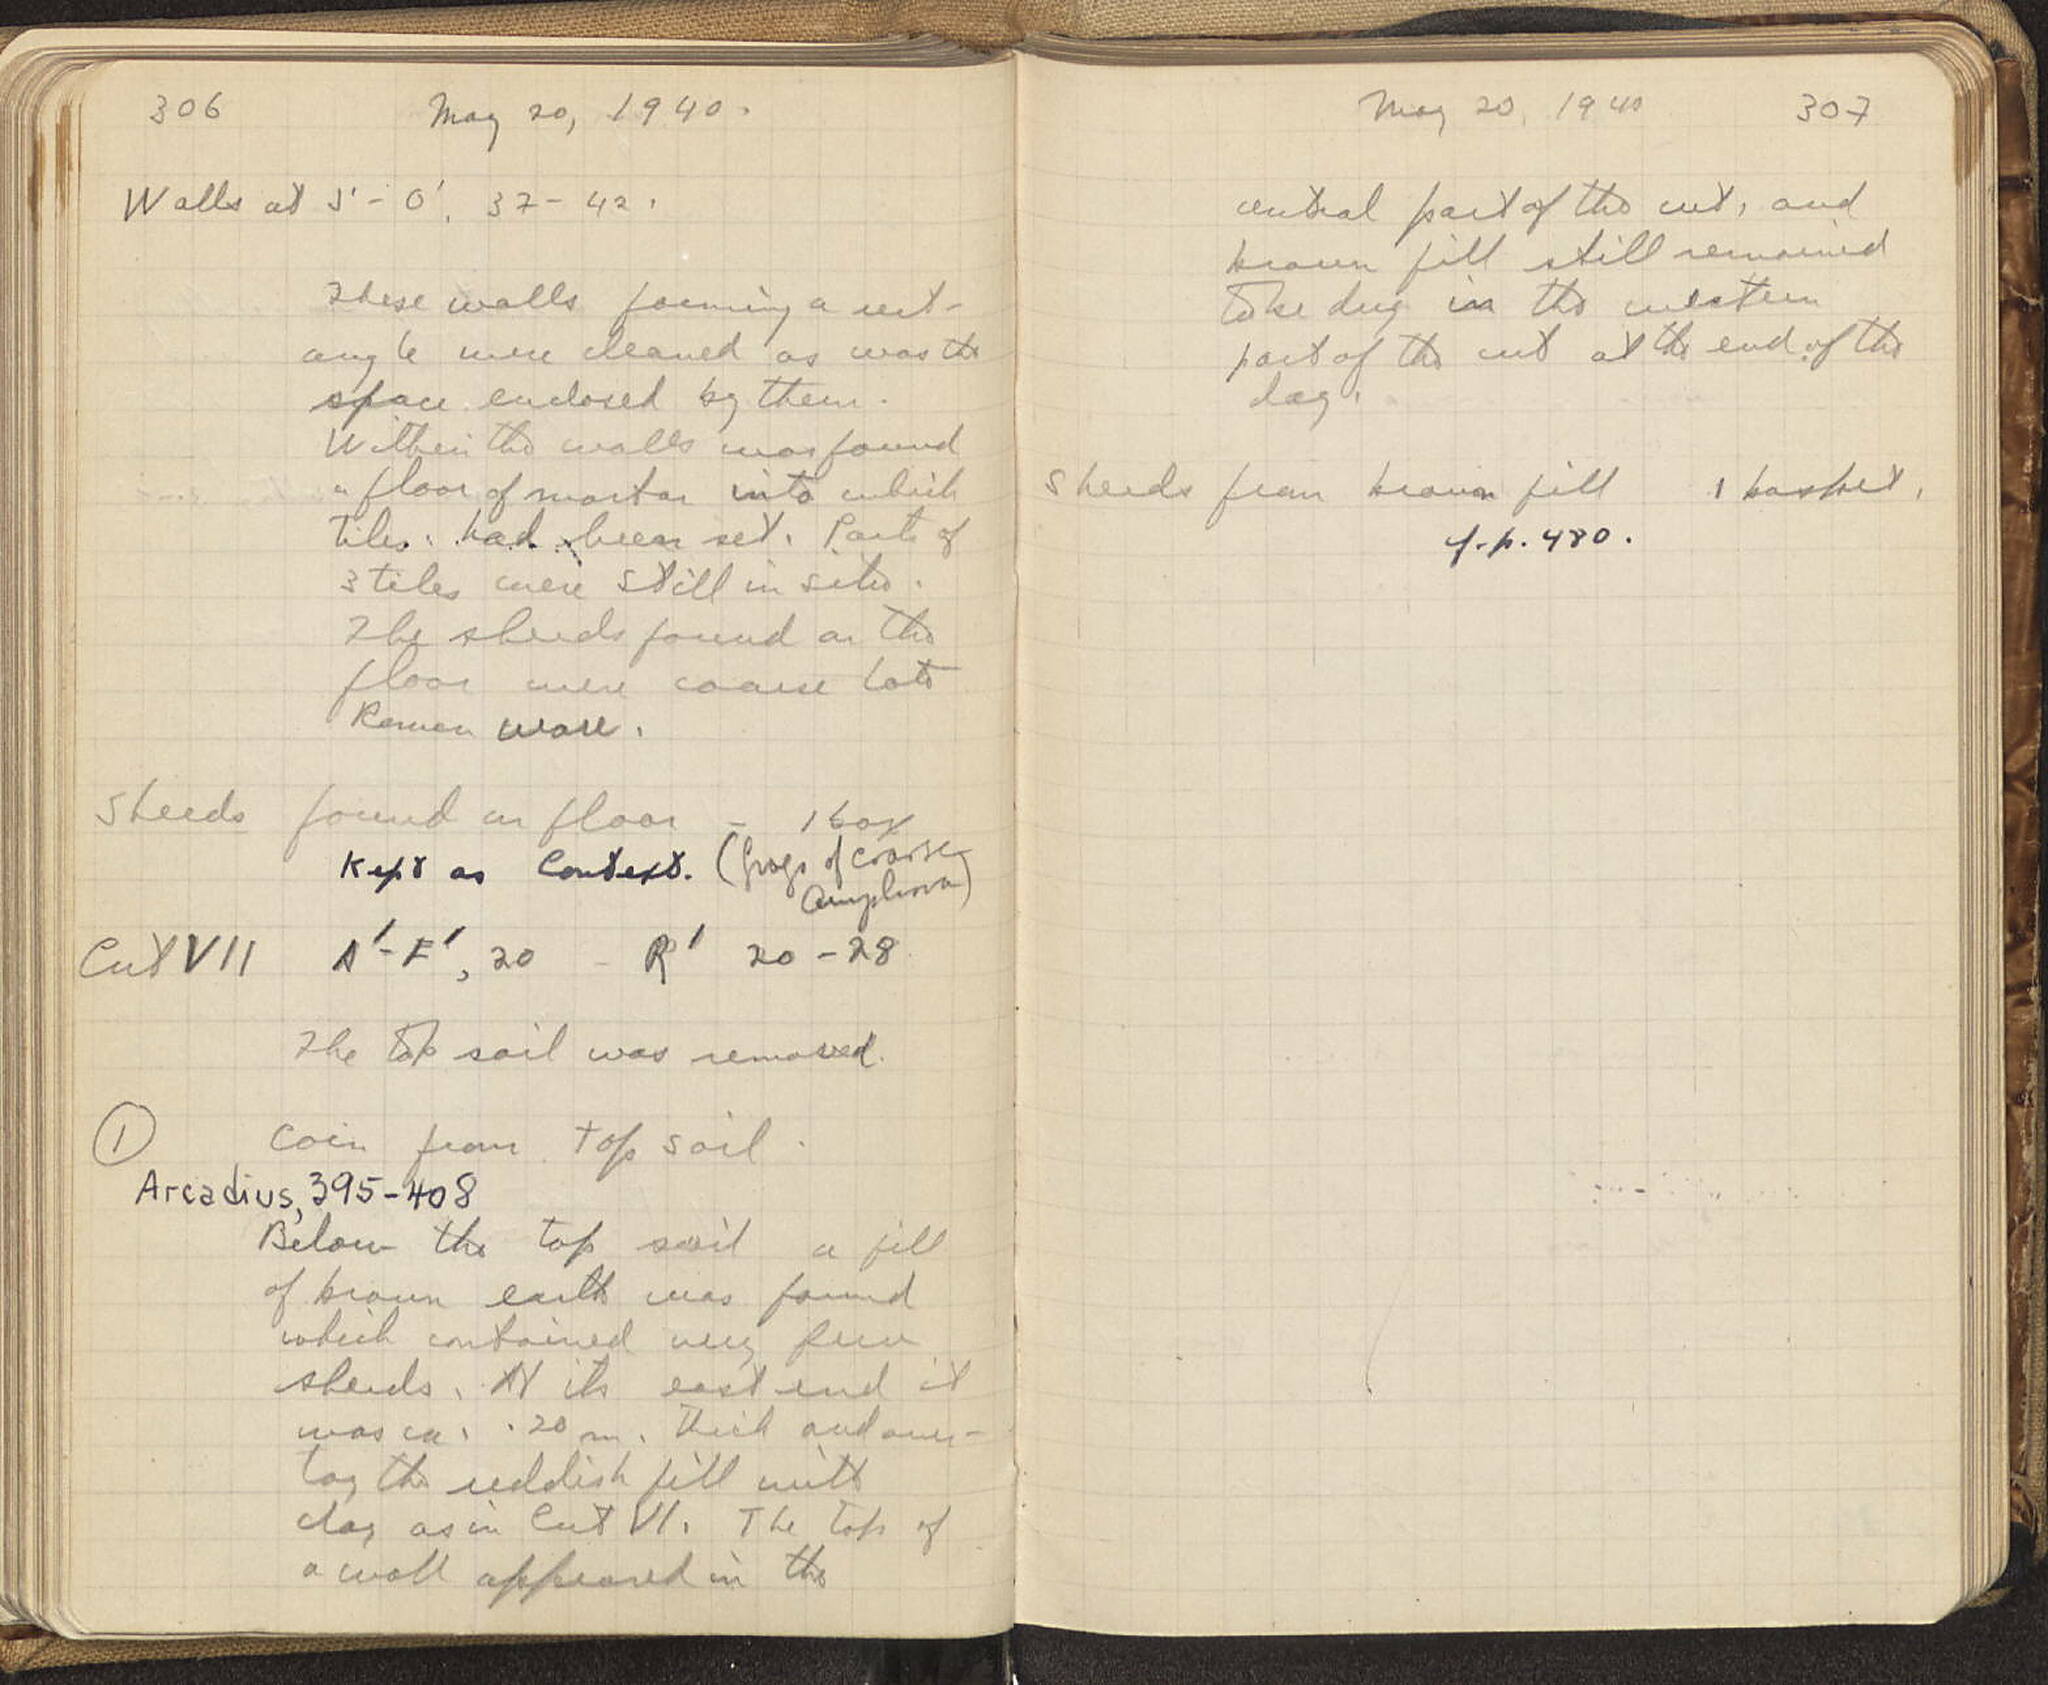 306
May 20, 1940.
Walls at J'-O', 37-42.
These walls forming a rect-
angle were cleaned as was the
space enclosed by them.
Within the walls was found
a floor of mortar into which
tiles had been set. Parts of
3 tiles were still in situ.
The sherds found on the
floor were coarse late
Roman ware.
Sherds found on floor - 1 box
Kept as Context. (frags of coarse
amphora)
Cut VII A'-E', 20 - R' 20-28
The top soil was removed.
1 Coin from top soil.
Arcadius, 395-408
Below the top soil a fill
of brown earth was found
which contained very few
sherds. At its east end it
was ca. .20 m. thick and over-
lay the reddish fill with
clay as in Cut VI. The top of
a wall appeared in the
May 20, 1940
307
central part of the cut, and
brown fill still remained
to be dug in the western
part of the cut at the end of the
day.
Sherds from brown fill 1 basket.
cf. p. 480.